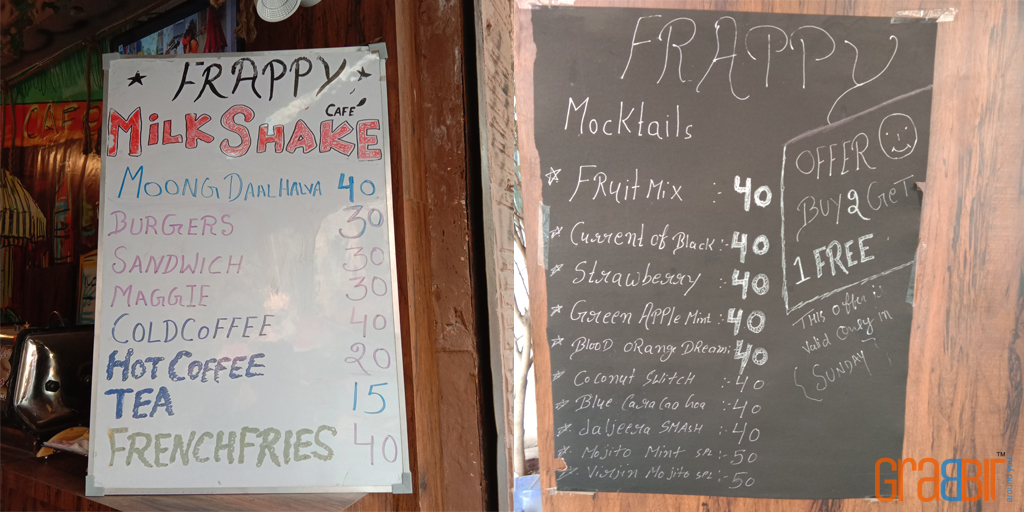 ★ FRAPPY ★
CAFÉ
MILKSHAKE
MOONG DAAL HALVA 40
BURGERS 30
SANDWICH 30
MAGGIE 30
COLDCOFFEE 40
HOT COFFEE 20
TEA 15
FRENCHFRIES 40
CAFE
FRAPPY
Mocktails
☆ FRuit Mix :- 40
☆ Current of Black :- 40
☆ Strawberry 40
☆ Green APPle Mint :- 40
☆ BlooD ORange DReam :- 40
☆ Coconut SWitCH :- 40
☆ Blue Caracao Goa :- 40
☆ Jaljeera SMAsH :- 40
☆ Mojito Mint SPL :- 50
☆ Virjin Mojito SPL :- 50
OFFER ☺
BUY 2 GeT
1 FREE
THIS offer is
valid only in
{ SUNDAY }
GRABBIR™